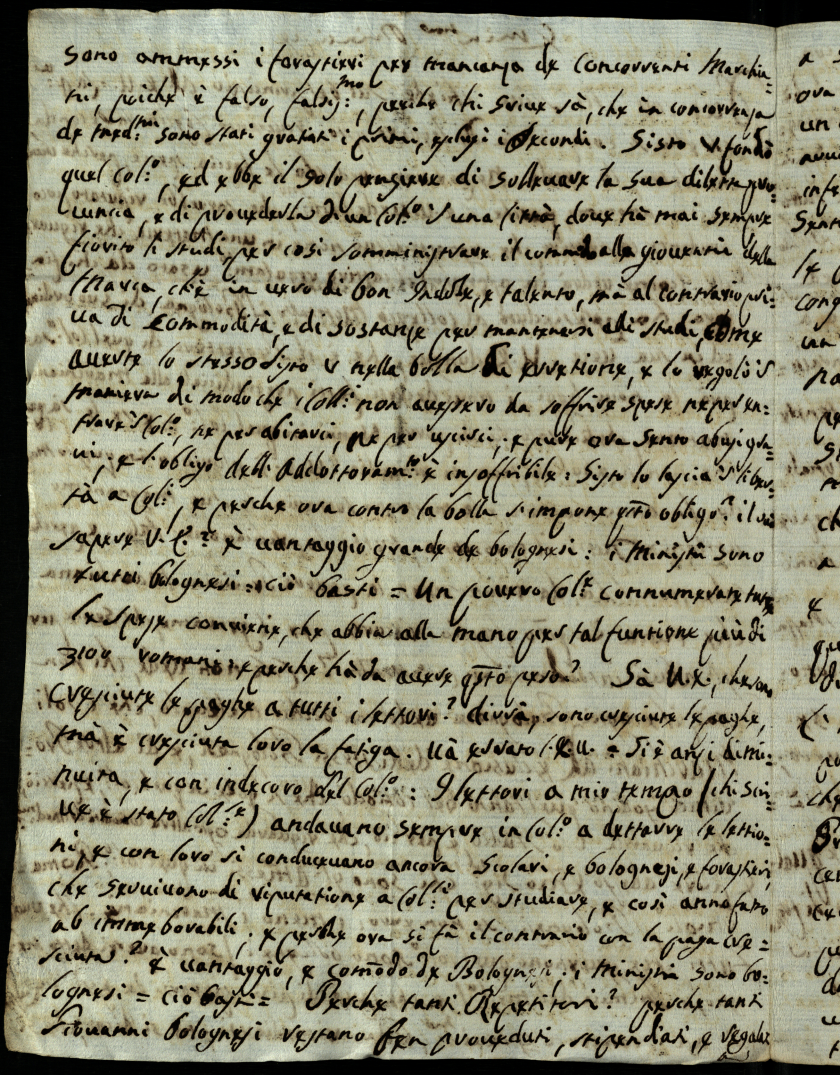 sono ammessi i forastieri per mancanza de Concorrenti Marchia=
ni, poiche è falso, falsis:mo, perche chi scrive sà, che in concorrenza
de med:mi sono stati gratiati i primi, esclusi i secondi. Sisto V fondò
quel Col:o, ed ebbe il solo pensiere di sollevare la sua diletta pro=
vincia, e di provederla di un Col:o 'n una Città, dove hà mai sempre
fiorito li studi, per così somministrare il commodo alla gioventù della
Marca, chè in vero di bon Indole, e talento, mà al contrario pri=
va di Commodità, e di sostanze per mantenersi alli studi, come
averte lo stesso Sisto V nella bolla di eretione, e lo regolò 'n
maniera di modo che i Coll:i non avessero da soffrire spese ne per en=
trare 'n Col:o, ne per abitarci, ne per uscirci, e pure ora sento abusi gra=
vi, e l'obligo dell Addottoram:to è insoffribile: Sisto lo lascia 'n liber=
tà a Col:i, e perche ora contro la bolla s'impone q:sto obligo? il sà
sapere V. E.? è vantaggio grande de bolognesi: i Ministri sono
tutti bolognesi = ciò basti = Un povero Col:e connumerate tutte
le spese conviene, che abbia alla mano per tal funtione più di
3100 romani: e perche hà da avere q:sto peso? Sà V.E., che sono
Cresciute le paghe a tutti i lettori? dirrà, sono cresciute le paghe,
mà è cresciuta loro la fatiga. Và errato l'E.V. = Si è anzi dimi=
nuita, e con indecoro del Col:o: I lettori a mio tempo (chi scri=
ve è stato Col:le) andavano sempre in Col:o a dettare le lettio=
ni, e con loro si conducevano ancora Scolari, e bolognesi, e forastieri,
che servivono di riputatione a Col:li per studiare, e così anno fatto
ab immemorabili; e perche ora si fà il contrario con la paga cre=
sciuta? è vantaggio, e comodo de Bolognesi: i Ministri sono bo=
lognesi = ciò basti = Perche tanti Repetitori? perche tanti
Giovanni bolognesi restano ben proveduti, stipendiati, e regalati